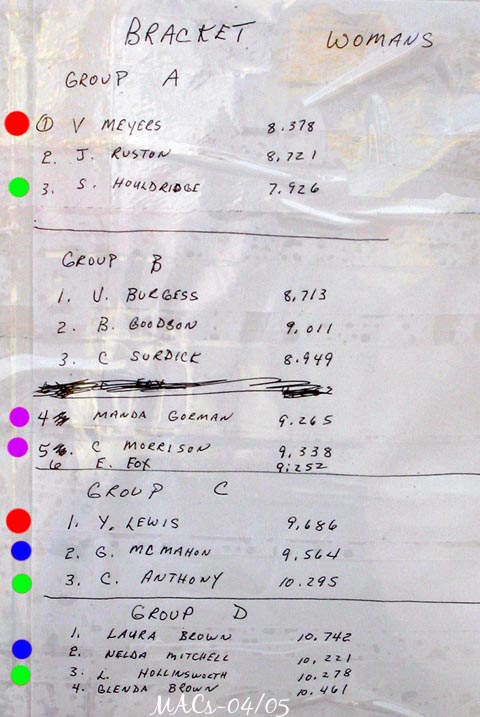 BRACKET WOMANS
GROUP A
1 V MEYERS 8.378
2. J. RUSTON 8.721
3. S. HOULDRIDGE 7.926
GROUP B
1. V. BURGESS 8.713
2. B. GOODSON 9.011
3. C SURDICK 8.949
4 MANDA GORMAN 9.265
5 C MORRISON 9.338
6 E. FOX 9.252
GROUP C
1. Y. LEWIS 9.686
2. G. MCMAHON 9.564
3. C. ANTHONY 10.295
GROUP D
1. LAURA BROWN 10.742
2. NELDA MITCHELL 10.221
3. L. HOLLINSWORTH 10.278
4. GLENDA BROWN 10.461
MACs-04/05